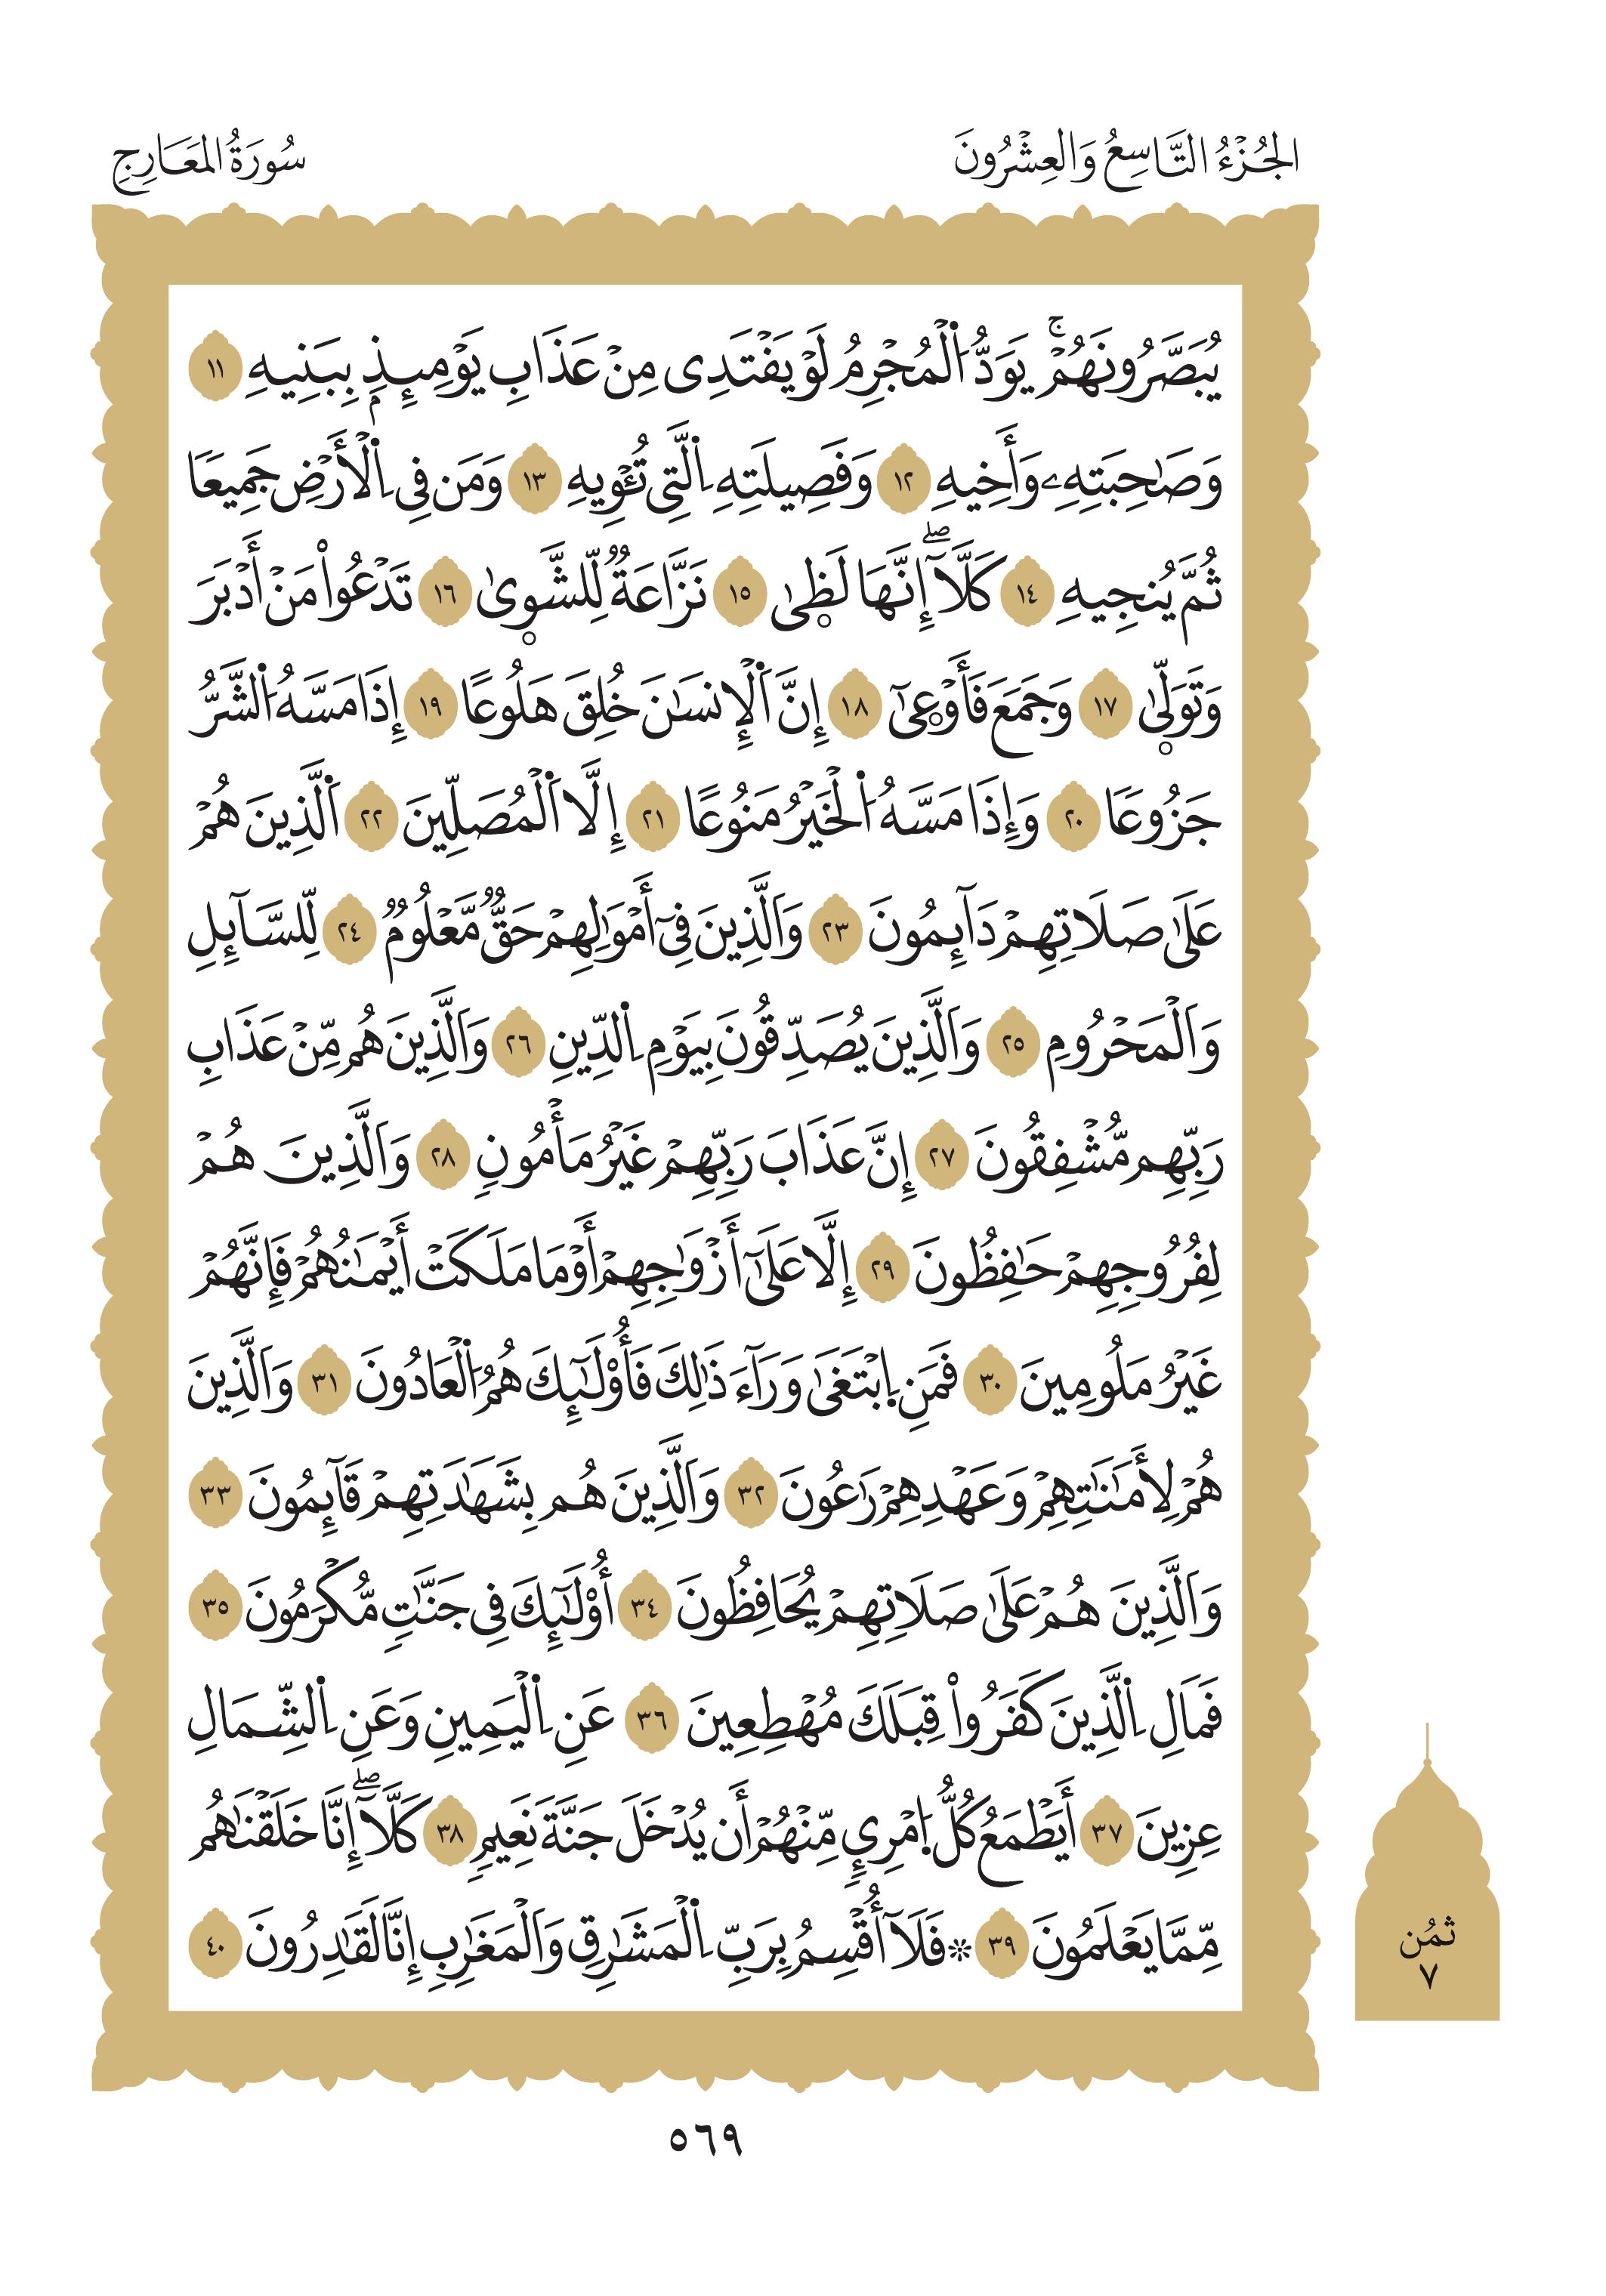 الجُزْءُ التَّاسِعُ وَالعِشْرُونَ
سُورَةُ المَعَارِجِ
يُبَصَّرُونَهُمْۚ يَوَدُّ اُ۬لْمُجْرِمُ لَوْ يَفْتَدِى مِنْ عَذَابِ يَوْمِئِذِۢ بِبَنِيهِ ١١
وَصَٰحِبَتِهِۦ وَأَخِيهِ ١٢ وَفَصِيلَتِهِ اِ۬لَّتِى تُـْٔوِيهِ ١٣ وَمَن فِى اِ۬لْأَرْضِ جَمِيعًا
ثُمَّ يُنجِيهِ ١٤ كَلَّآۖ إِنَّهَا لَظ۪ىٰ ١٥ نَزَّاعَةٌ لِّلشَّو۪ىٰ ١٦ تَدْعُواْ مَنْ أَدْبَرَ
وَتَوَلّ۪ىٰ ١٧ وَجَمَعَ فَأَوْع۪ىٰٓ ١٨ إِنَّ اَ۬لْإِنسَٰنَ خُلِقَ هَلُوعًا ١٩ إِذَا مَسَّهُ اُ۬لشَّرُّ
جَزُوعًا ٢٠ وَإِذَا مَسَّهُ اُ۬لْخَيْرُ مَنُوعًا ٢١ إِلَّا اَ۬لْمُصَلِّينَ ٢٢ اَ۬لَّذِينَ هُمْ
عَلَىٰ صَلَاتِهِمْ دَآئِمُونَ ٢٣ وَاَلَّذِينَ فِىٓ أَمْوَٰلِهِمْ حَقٌّ مَّعْلُومٌ ٢٤ لِّلسَّآئِلِ
وَاَلْمَحْرُومِ ٢٥ وَاَلَّذِينَ يُصَدِّقُونَ بِيَوْمِ اِ۬لدِّينِ ٢٦ وَاَلَّذِينَ هُم مِّنْ عَذَابِ
رَبِّهِم مُّشْفِقُونَ ٢٧ إِنَّ عَذَابَ رَبِّهِمْ غَيْرُ مَأْمُونٍ ٢٨ وَاَلَّذِينَ هُمْ
لِفُرُوجِهِمْ حَٰفِظُونَ ٢٩ إِلَّا عَلَىٰٓ أَزْوَٰجِهِمْ أَوْ مَا مَلَكَتْ أَيْمَٰنُهُمْ فَإِنَّهُمْ
غَيْرُ مَلُومِينَ ٣٠ فَمَنِ اِ۪بْتَغَىٰ وَرَآءَ ذَٰلِكَ فَأُوْلَٰٓئِكَ هُمُ اُ۬لْعَادُونَ ٣١ وَاَلَّذِينَ
هُمْ لِأَمَٰنَٰتِهِمْ وَعَهْدِهِمْ رَٰعُونَ ٣٢ وَاَلَّذِينَ هُم بِشَهَٰدَتِهِمْ قَآئِمُونَ ٣٣
وَاَلَّذِينَ هُمْ عَلَىٰ صَلَاتِهِمْ يُحَافِظُونَ ٣٤ أُوْلَٰٓئِكَ فِى جَنَّٰتٍ مُّكْرَمُونَ ٣٥
فَمَالِ اِ۬لَّذِينَ كَفَرُواْ قِبَلَكَ مُهْطِعِينَ ٣٦ عَنِ اِ۬لْيَمِينِ وَعَنِ اِ۬لشِّمَالِ
عِزِينَ ٣٧ أَيَطْمَعُ كُلُّ اُ۪مْرِئٍ مِّنْهُمْ أَن يُدْخَلَ جَنَّةَ نَعِيمٍ ٣٨ كَلَّآۖ إِنَّا خَلَقْنَٰهُم
مِّمَّا يَعْلَمُونَ ٣٩ ❊ فَلَآ أُقْسِمُ بِرَبِّ اِ۬لْمَشَٰرِقِ وَاَلْمَغَٰرِبِ إِنَّا لَقَٰدِرُونَ ٤٠
ثمُن
٧
٥٦٩